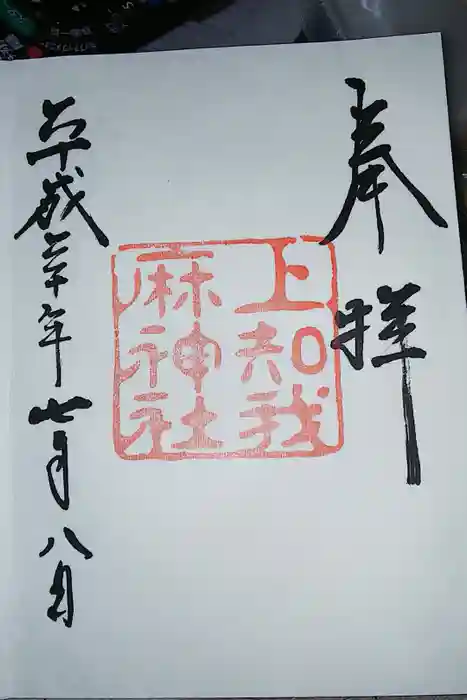 奉拝
上知我
麻神社
平成三十年七月八日